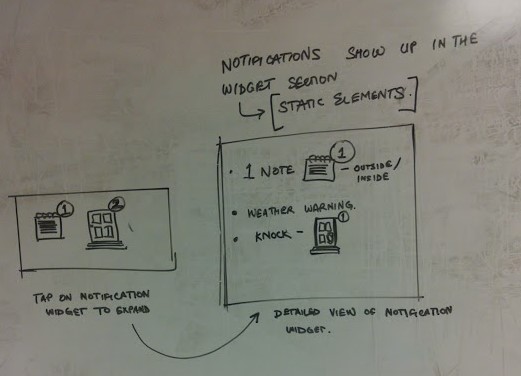 NOTIFICATIONS SHOW UP IN THE
WIDGET SECTION
[STATIC ELEMENTS.]
1 NOTE 1 - OUTSIDE/
INSIDE
WEATHER WARNING.
KNOCK - 1
1 2
TAP ON NOTIFICATION
WIDGET TO EXPAND
DETAILED VIEW OF NOTIFICATION
WIDGET.